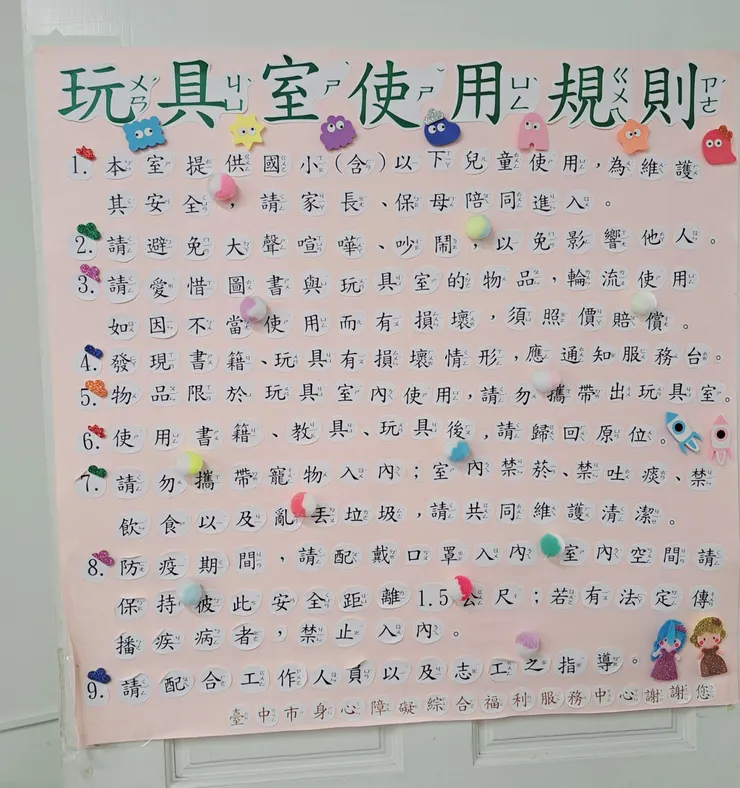 玩具室使用規則
1. 本室提供國小(含)以下兒童使用,為維護
其安全,請家長、保母陪同進入。
2. 請避免大聲喧嘩、吵鬧,以免影響他人。
3. 請愛惜圖書與玩具室的物品,輪流使用
如因不當使用而有損壞,須照價賠償。
4. 發現書籍、玩具有損壞情形,應通知服務台。
5. 物品限於玩具室內使用,請勿攜帶出玩具室。
6. 使用書籍、教具、玩具後,請歸回原位。
7. 請勿攜帶寵物入內;室內禁菸、禁吐痰、禁
飲食以及亂丟垃圾,請共同維護清潔。
8. 防疫期間,請配戴口罩入內,室內空間請
保持彼此安全距離1.5公尺;若有法定傳
播疾病者,禁止入內。
9. 請配合工作人員以及志工之指導。
臺中市身心障礙綜合福利服務中心謝謝您